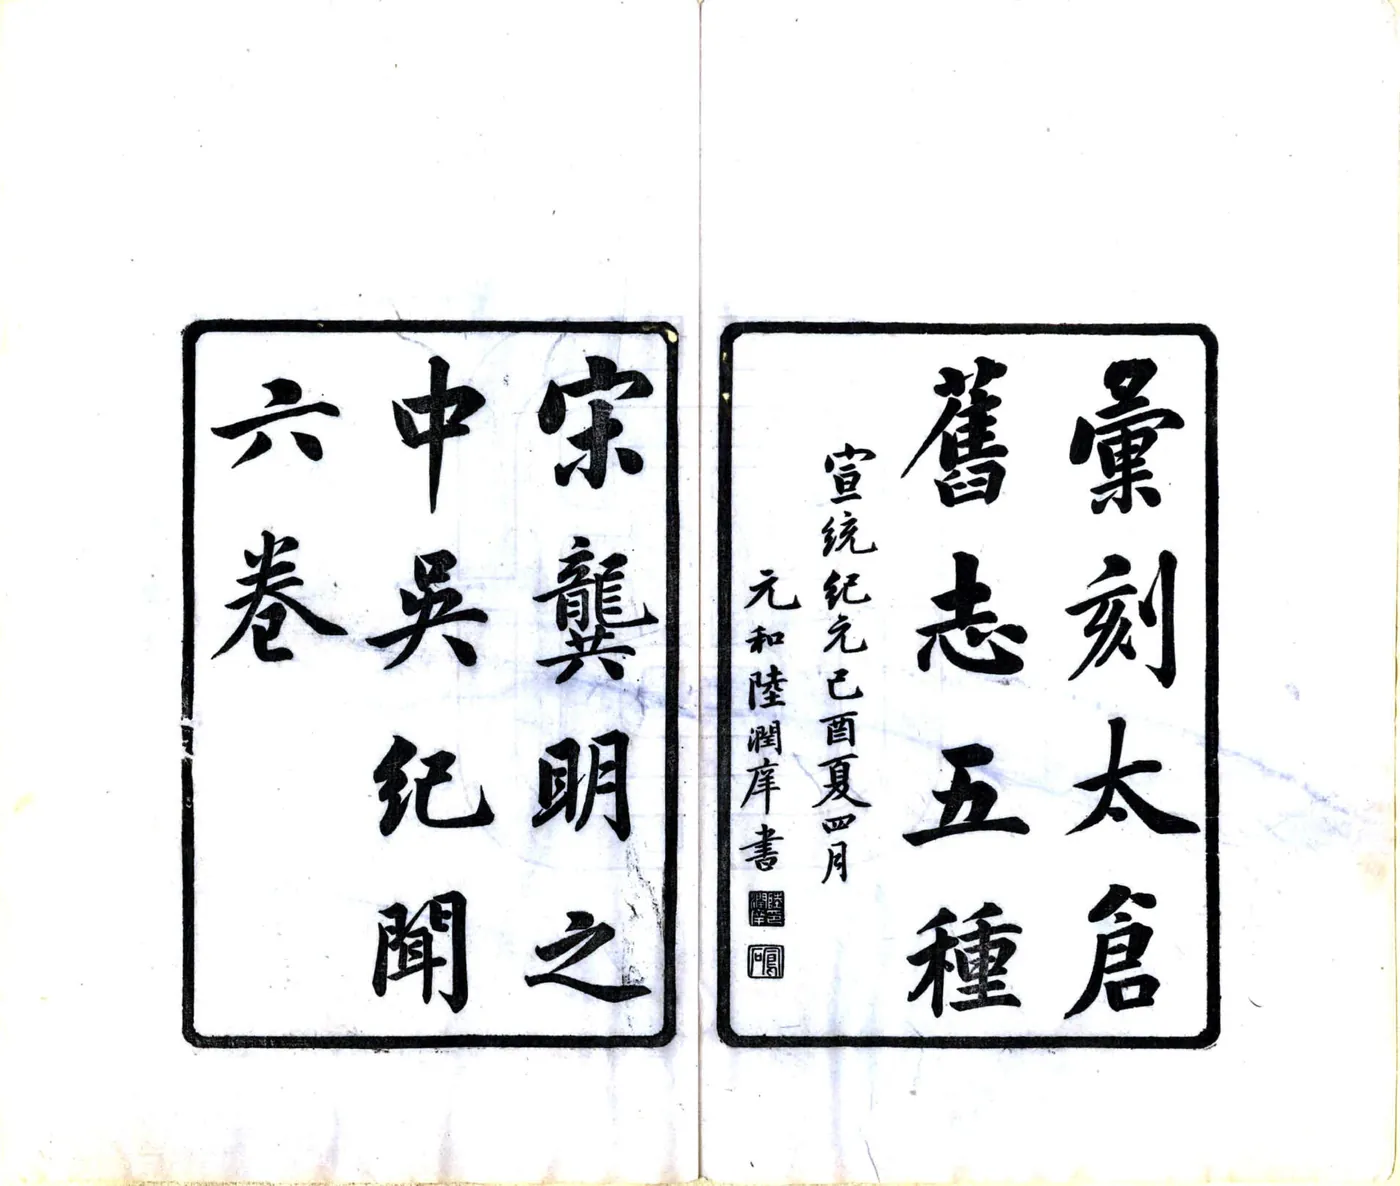 彙刻太倉
舊志五種
宣統紀元己酉夏四月
元和陸潤庠書
宋龔明之
中吳紀聞
六卷